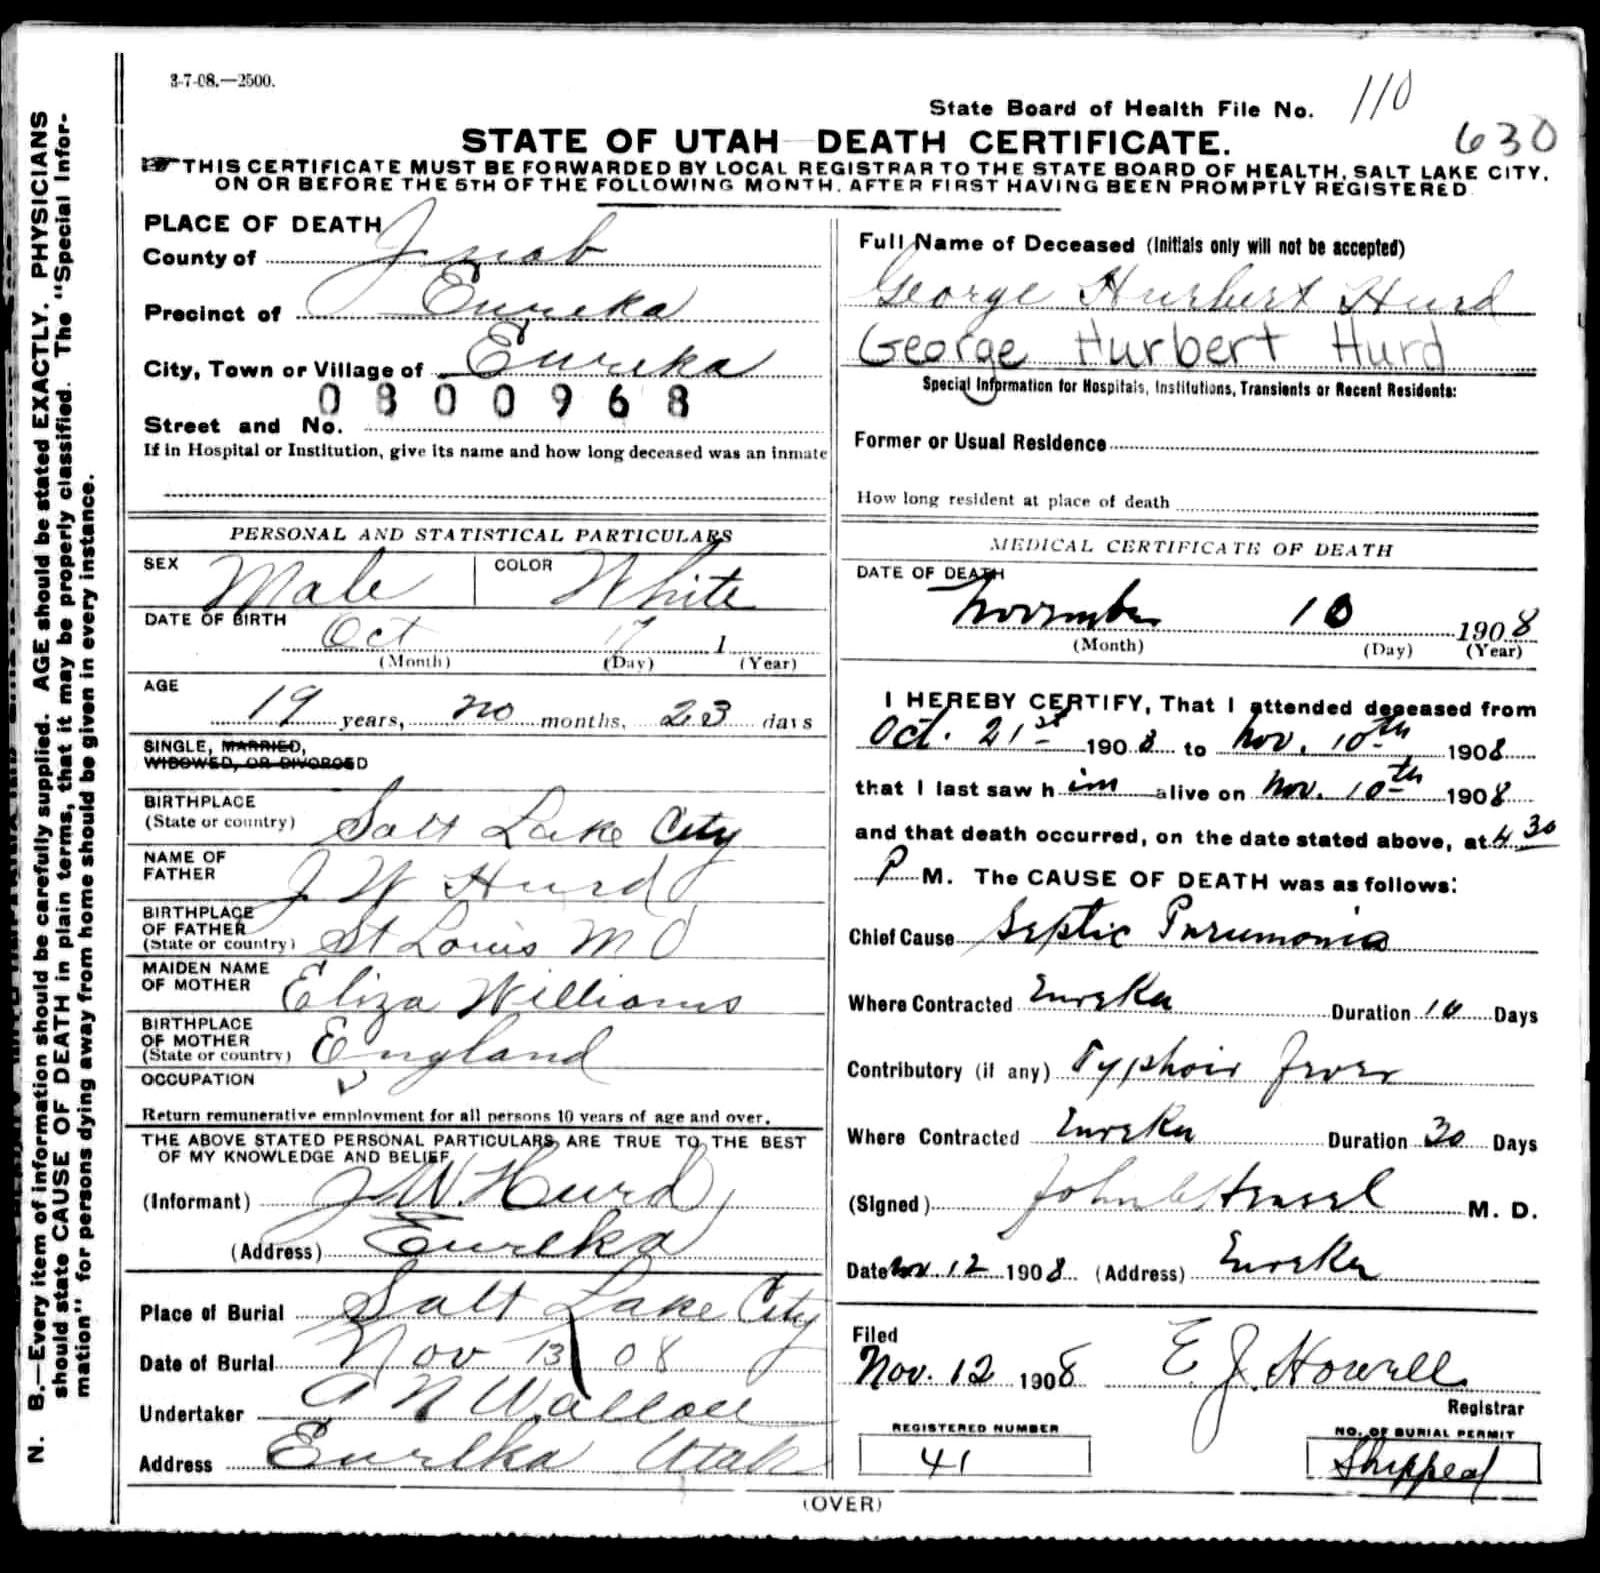 3-7-08.—2500.
State Board of Health File No. 110
630
STATE OF UTAH DEATH CERTIFICATE.
THIS CERTIFICATE MUST BE FORWARDED BY LOCAL REGISTRAR TO THE STATE BOARD OF HEALTH, SALT LAKE CITY,
ON OR BEFORE THE 5TH OF THE FOLLOWING MONTH, AFTER FIRST HAVING BEEN PROMPTLY REGISTERED
N. B.—Every item of information should be carefully supplied. AGE should be stated EXACTLY. PHYSICIANS
should state CAUSE OF DEATH in plain terms, that it may be properly classified. The "Special Infor-
mation" for persons dying away from home should be given in every instance.
PLACE OF DEATH
County of Juab
Precinct of Eureka
City, Town or Village of Eureka
0800968
Street and No.
If in Hospital or Institution, give its name and how long deceased was an inmate
PERSONAL AND STATISTICAL PARTICULARS
SEX Male COLOR White
DATE OF BIRTH Oct 17 1
(Month) (Day) (Year)
AGE
19 years, no months, 23 days
SINGLE, MARRIED,
WIDOWED, OR DIVORCED
BIRTHPLACE
(State or country) Salt Lake City
NAME OF
FATHER J W Hurd
BIRTHPLACE
OF FATHER
(State or country) St Louis MO
MAIDEN NAME
OF MOTHER Eliza Williams
BIRTHPLACE
OF MOTHER
(State or country) England
OCCUPATION
Return remunerative employment for all persons 10 years of age and over.
THE ABOVE STATED PERSONAL PARTICULARS ARE TRUE TO THE BEST
OF MY KNOWLEDGE AND BELIEF
(Informant) J W. Hurd
(Address) Eureka
Place of Burial Salt Lake City
Date of Burial Nov 13 08
Undertaker A N Wallace
Address Eureka Utah
Full Name of Deceased (Initials only will not be accepted)
George Hurbert Hurd
George Hurbert Hurd
Special Information for Hospitals, Institutions, Transients or Recent Residents:
Former or Usual Residence
How long resident at place of death
MEDICAL CERTIFICATE OF DEATH
DATE OF DEATH
November 10 1908
(Month) (Day) (Year)
I HEREBY CERTIFY, That I attended deceased from
Oct. 21st 1908 to Nov. 10th 1908
that I last saw him alive on Nov. 10th 1908
and that death occurred, on the date stated above, at 4 30
P M. The CAUSE OF DEATH was as follows:
Chief Cause Septic Pneumonia
Where Contracted Eureka Duration 10 Days
Contributory (if any) Typhoid fever
Where Contracted Eureka Duration 30 Days
(Signed) John Hensel M. D.
Date Nov. 12 1908 (Address) Eureka
Filed
Nov. 12 1908 E. J. Howell
Registrar
REGISTERED NUMBER
41
NO. OF BURIAL PERMIT
Shipped
(OVER)